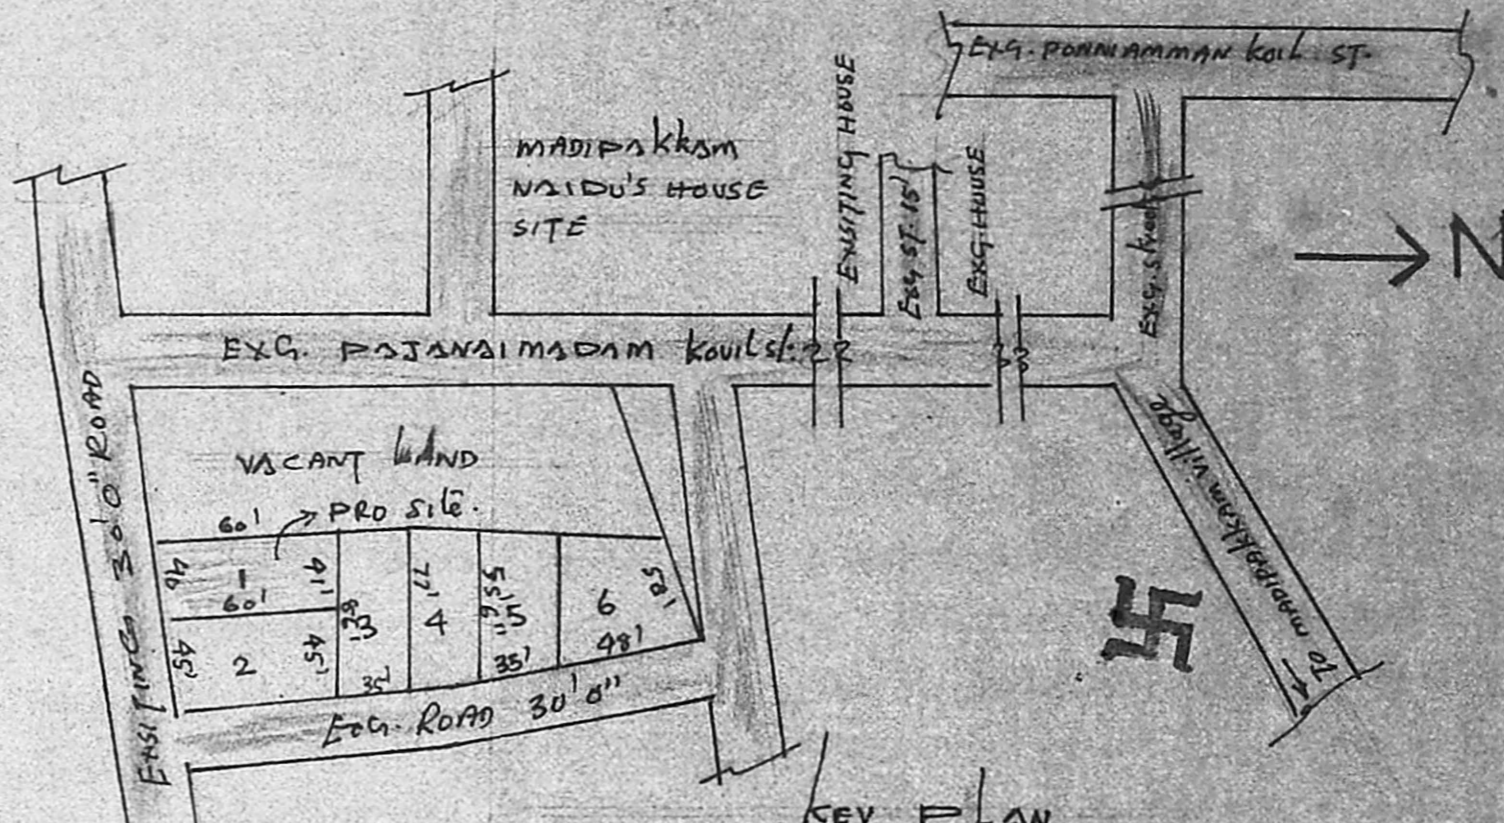 EXG. PONNIAMMAN KOIL ST.
MADIPAKKAM
NAIDU'S HOUSE
SITE
EXSITING HOUSE
EXG ST. 15'
EXG HOUSE
EXG. street
N
EXG. PAJANAI MADAM KOVIL st.
EXSITING 30'0" ROAD
VACANT LAND
PRO SITE.
60'
40
1
41'
60'
45'
2
45'
3
35'
77'
4
55'6"
5
35'
52'
6
48'
EXG. ROAD 30'0"
To MADIPAKKAM village
KEY PLAN